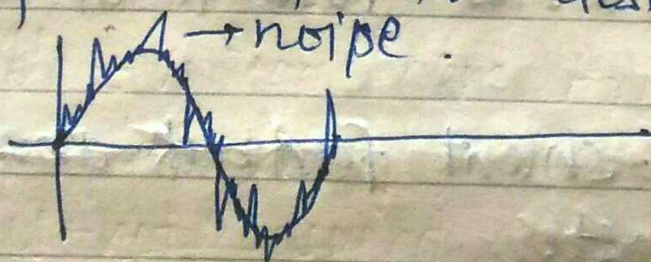 → noise.